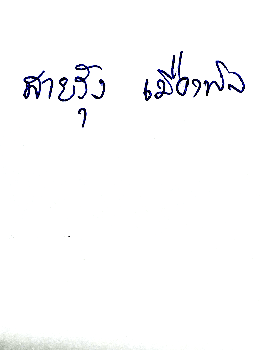 สายรุ้ง เมืองพล